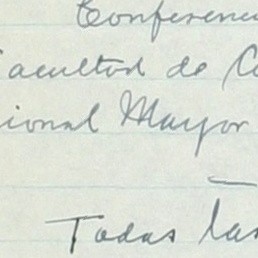 Conferenci
Facultad de C
ional Mayor
Todas las